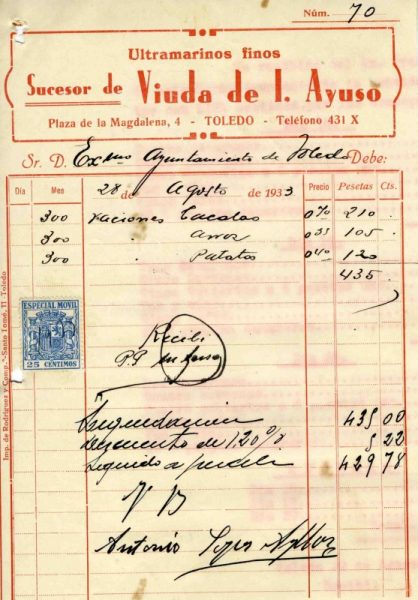 Núm. 70
Ultramarinos finos
Sucesor de Viuda de I. Ayuso
Plaza de la Magdalena, 4 - TOLEDO - Teléfono 431 X
Sr. D. Exmo Ayuntamiento de Toledo Debe:
Día Mes 28 de Agosto de 1933 Precio Pesetas Cts.
300 raciones 0'70 210
300 " arroz 0'35 105
300 " Patatas 0'40 120
435
ESPECIAL MÓVIL
25 CENTIMOS
Recibi
P.P.
435 00
descuento de 1,20 % 5 22
Liquido a percibir 429 78
V B
Antonio Lopez
Imp. de Rodríguez y Comp.ª-Santo Tomé, 11-Toledo